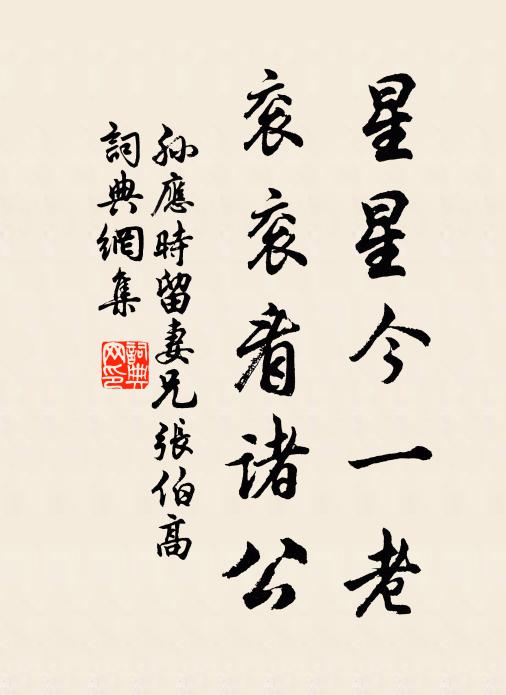 星星今一老
衮衮看诸公
孙應時留妻兄張伯高
詞典網集
詞典网印